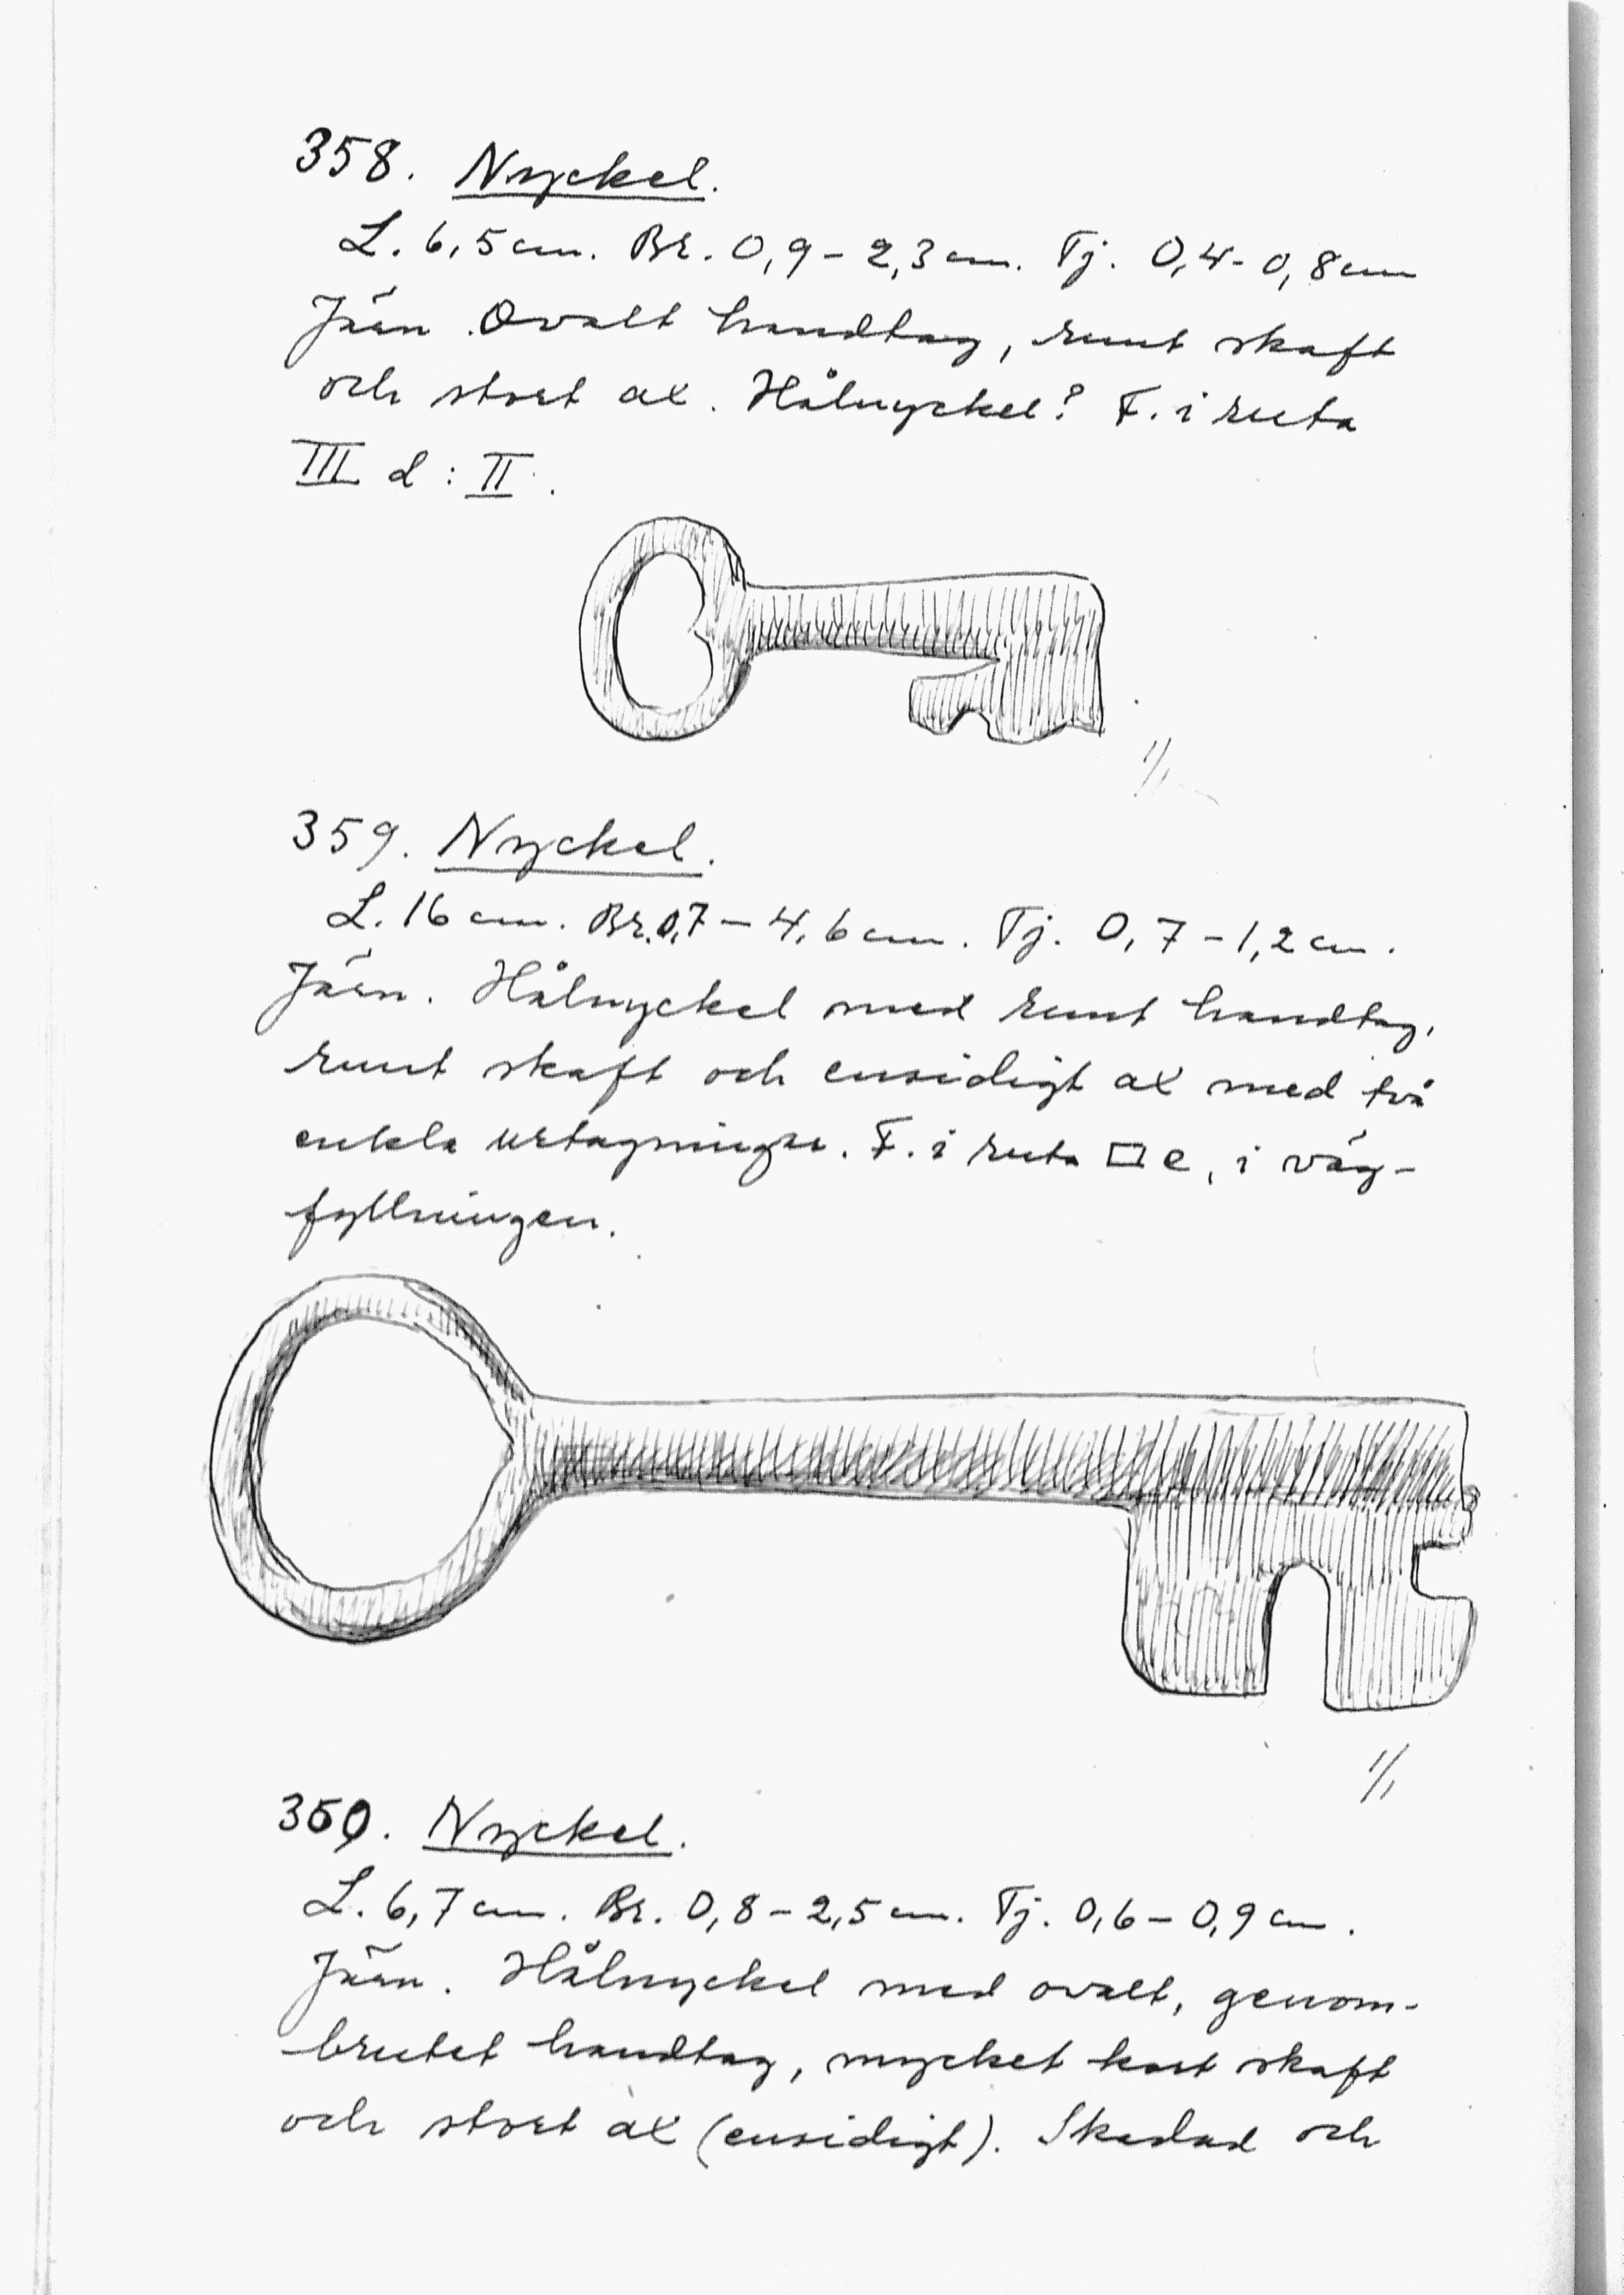 358. Nyckel.
L. 6,5 cm. Br. 0,9 – 2,3 cm. Tj. 0,4 - 0,8 cm
Järn. Ovalt handtag, runt skaft
och stort ax. Hålnyckel? F. i ruta
III d : II.
1/1
359. Nyckel.
L. 16 cm. Br. 0,7 – 4,6 cm. Tj. 0,7 – 1,2 cm.
Järn. Hålnyckel med runt handtag,
runt skaft och ensidigt ax med två
enkla urtagningar. F. i ruta □ e, i väg-
fyllningen.
1/1
360. Nyckel.
L. 6,7 cm. Br. 0,8 – 2,5 cm. Tj. 0,6 – 0,9 cm.
Järn. Hålnyckel med ovalt, genom-
brutet handtag, mycket kort skaft
och stort ax (ensidigt). Skadad och